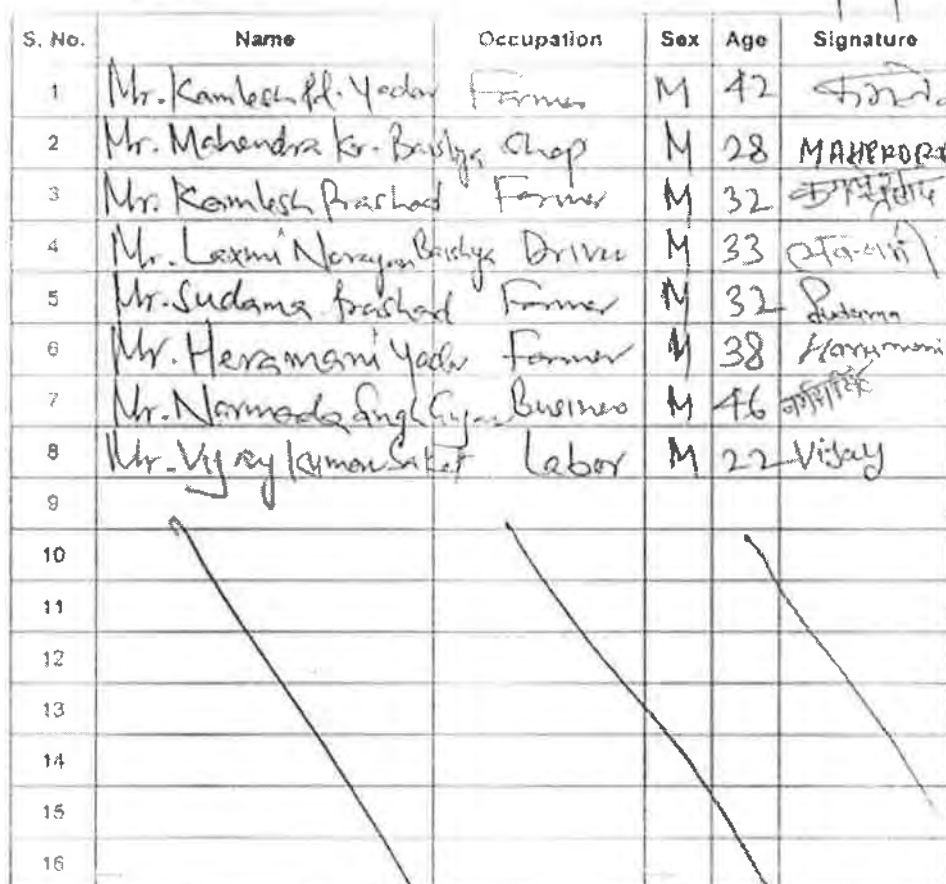 S. No. Name Occupation Sex Age Signature
1 Mr. Kamlesh Pd. Yadav Farmer M 42
2 Mr. Mahendra Kr. Baishya Shop M 28 MAHENDRA
3 Mr. Kamlesh Prashad Farmer M 32
4 Mr. Laxmi Narayan Baishya Driver M 33
5 Mr. Sudama Prashad Farmer M 32 Sudama
6 Mr. Heramani Yadav Farmer M 38 Haramani
7 Mr. Narmada Singh Business M 46
8 Mr. Vijay Kumar Saket Labor M 22 Vijay
9
10
11
12
13
14
15
16